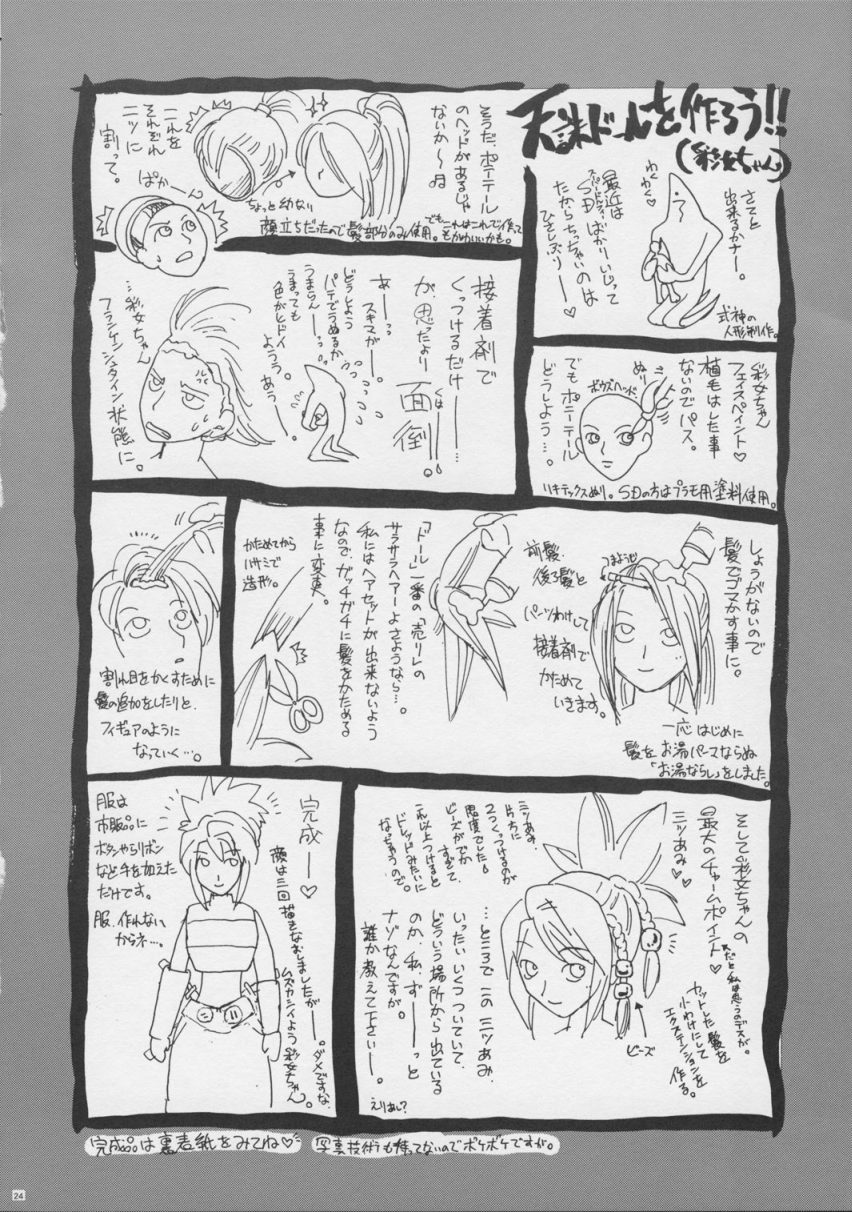 天誅ドールを作ろう!!
(彩女ちゃん)
さてと
出来るかナー。
わくわく♡
最近は
スーパードルフィー
SDばかりいじって
たからちっちゃいのは
ひさしぶりー♡
式神の
人形制作。
そうだ、ポニーテール
のヘッドがあるじゃ
ないか〜
ちょっと幼ない
顔立ちだったので髪部分のみ使用。
でもこれはこれで作って
もかわいいかも。
これを
それぞれ
二ツに
割って。
ぱかーん
彩女ちゃん
フェイスペイント♡
植毛はした事
ないのでパス。
でもポニーテール
どうしよう…。
ぬり
ボウズヘッド
リキテックスぬり。SDの方はプラモ用塗料使用。
接着剤で
くっつけるだけ———…
が、思ったより面倒。
くはー
あーっっ
スキマがー。
どうしよう
パテでうめるか
うまらんーっっ
うまっても
色がヒドイ
ようう。
あうー。
…彩女ちゃん
フランケンシュタイン状態に。
しょうがないので
髪でゴマかす事に。
つまようじ
一応はじめに
髪をお湯パーマならぬ
「お湯ならし」をしました。
前髪、
後ろ髪と
パーツわけして
接着剤で
かためて
いきます。
「ドール」一番の「売り」の
サラサラヘアーよさようなら…。
私にはヘアセットが出来ないよう
なので、ガッチガチに髪をかためる
事に変更。
かためてから
ハサミで
造形。
割れ目をかくすために
髪の追加をしたりと、
フィギュアのように
なっていく…。
そして彩女ちゃんの
最大のチャームポイント♡
三ツあみ♡
だと私は思うのデスが。
カットした髪を
小わけにして
エクステンションを
作る。
ビーズ
三ツあみ、
片方に
2つくっつけるのが
限度でした。
ビーズがでか
すぎて
これ以上つけると
ドレッドみたいに
なっちゃうので。
…ところでこの三ツあみ、
いったいいくつついていて、
どういう場所から出ている
のか、私、ずーーっと
ナゾなんですが。
誰か教えて下さいー。
えりあし?
完成ー♡
顔は三回描きなおしましたがー。ダメですな、
ムズカシイよう彩女ちゃん。
服は
市販品に
ボタンやらリボン
など手を加えた
だけです。
服、作れない
からネ…。
完成品は裏表紙をみてね♡
写真技術も持ってないのでボケボケですが。
24